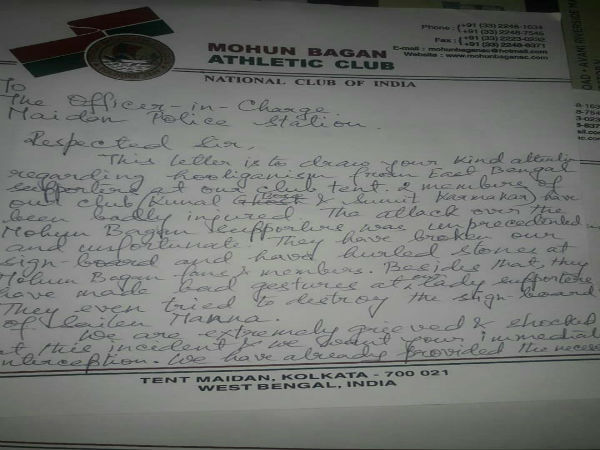 Phone : (+91 (33) 2248-1634
(+91 (33) 2248-7546
Fax : (+91 (33) 2223-0292
(+91 (33) 2248-6371
E-mail : mohunbaganac@hotmail.com
Website : www.mohunbaganac.com
MOHUN BAGAN
ATHLETIC CLUB
NATIONAL CLUB OF INDIA
To
The Officer-in-Charge
Maidan Police Station.
Respected Sir,
This letter is to draw your kind attention
regarding hooliganism from East Bengal
supporters at our club tent. 2 members of
our club (Kunal Bose & Sumit Karmakar) have
been badly injured. The attack over the
Mohun Bagan supporters was unprecedented
and unfortunate. They have broken our
sign-board and have hurled stones at
Mohun Bagan fans & members. Besides that, they
have made bad gestures at lady supporters.
They even tried to destroy the sign-board
of Sailen Manna.
We are extremely grieved & shocked
at this incident & we want your immediat
interception. We have already provided the necess
TENT MAIDAN, KOLKATA - 700 021
WEST BENGAL, INDIA